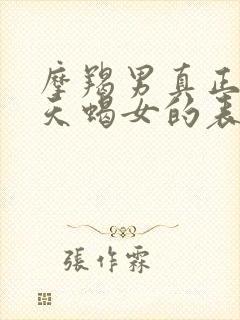 摩羯男真正
天蝎女的表
張作霖